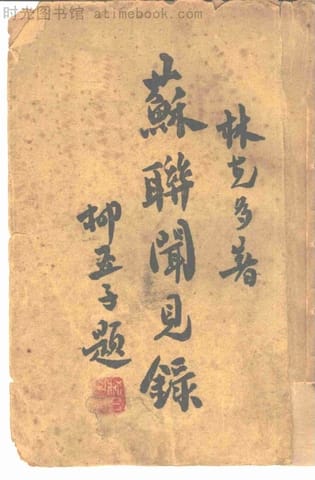 时光图书馆 atimebook.com
林克多著
蘇聯聞見録
柳亚子題